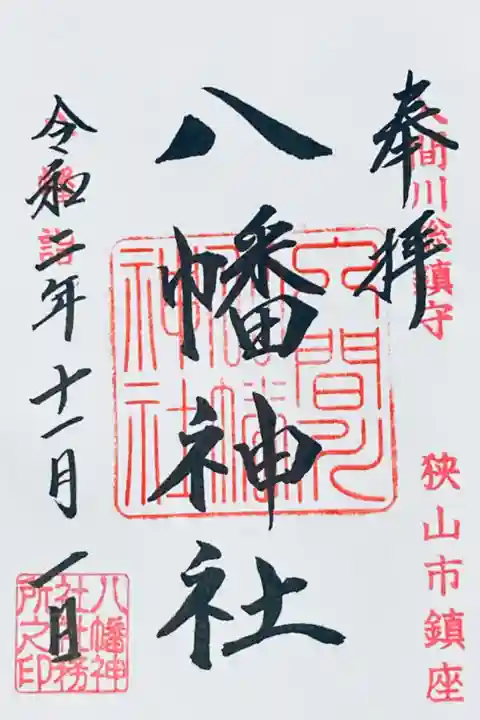 奉拝
入間川総鎮守
狭山市鎮座
八幡神社
入間川
八幡
神社
令和二年十一月一日
八幡詣
八幡神
社社務
所之印